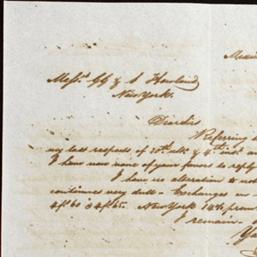 Mess.rs G G & S Howland
New York.
Dear Sirs
Referring
my last respects of 30th ult. & 4th inst.
I have now none of your favors to reply
I have no alteration to not
continues very dull – Exchanges
4/60 @ 4/65. New York 14% prem
I remain